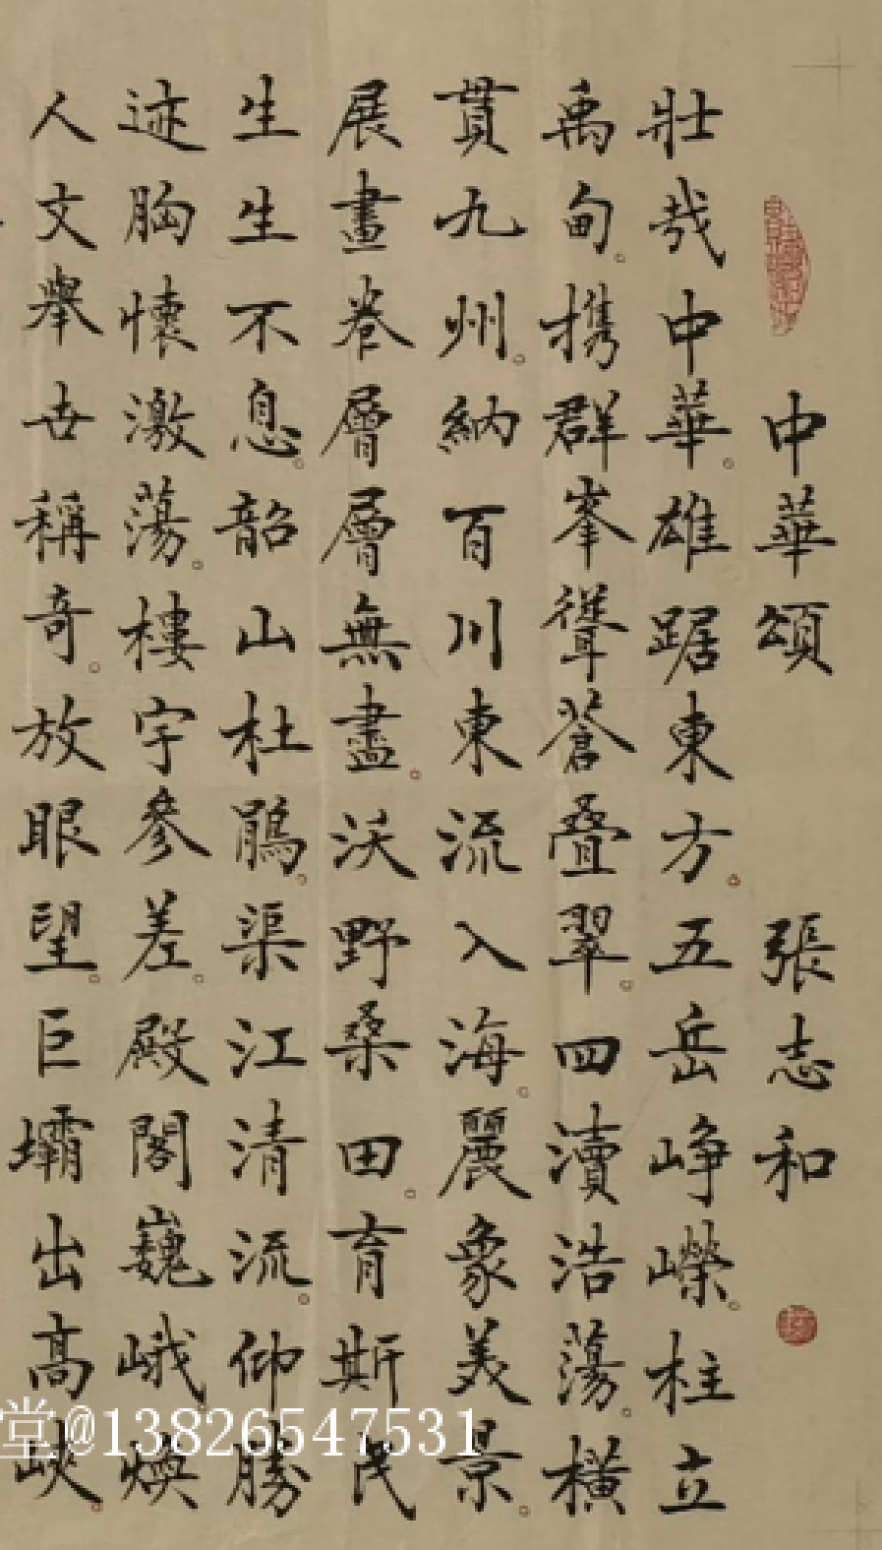 中華頌 張志和
壯哉中華。雄踞東方。五岳峥嶸。柱立
禹甸。携群峯聳蒼叠翠。四瀆浩蕩。橫
貫九州。納百川東流入海。麗象美景。
展畫卷層層無盡。沃野桑田。育斯民
生生不息。韶山杜鵑。渠江清流。仰勝
迹胸懷激蕩。樓宇參差。殿閣巍峨。煥
人文舉世稱奇。放眼望。巨壩出高峽。
堂@13826547531